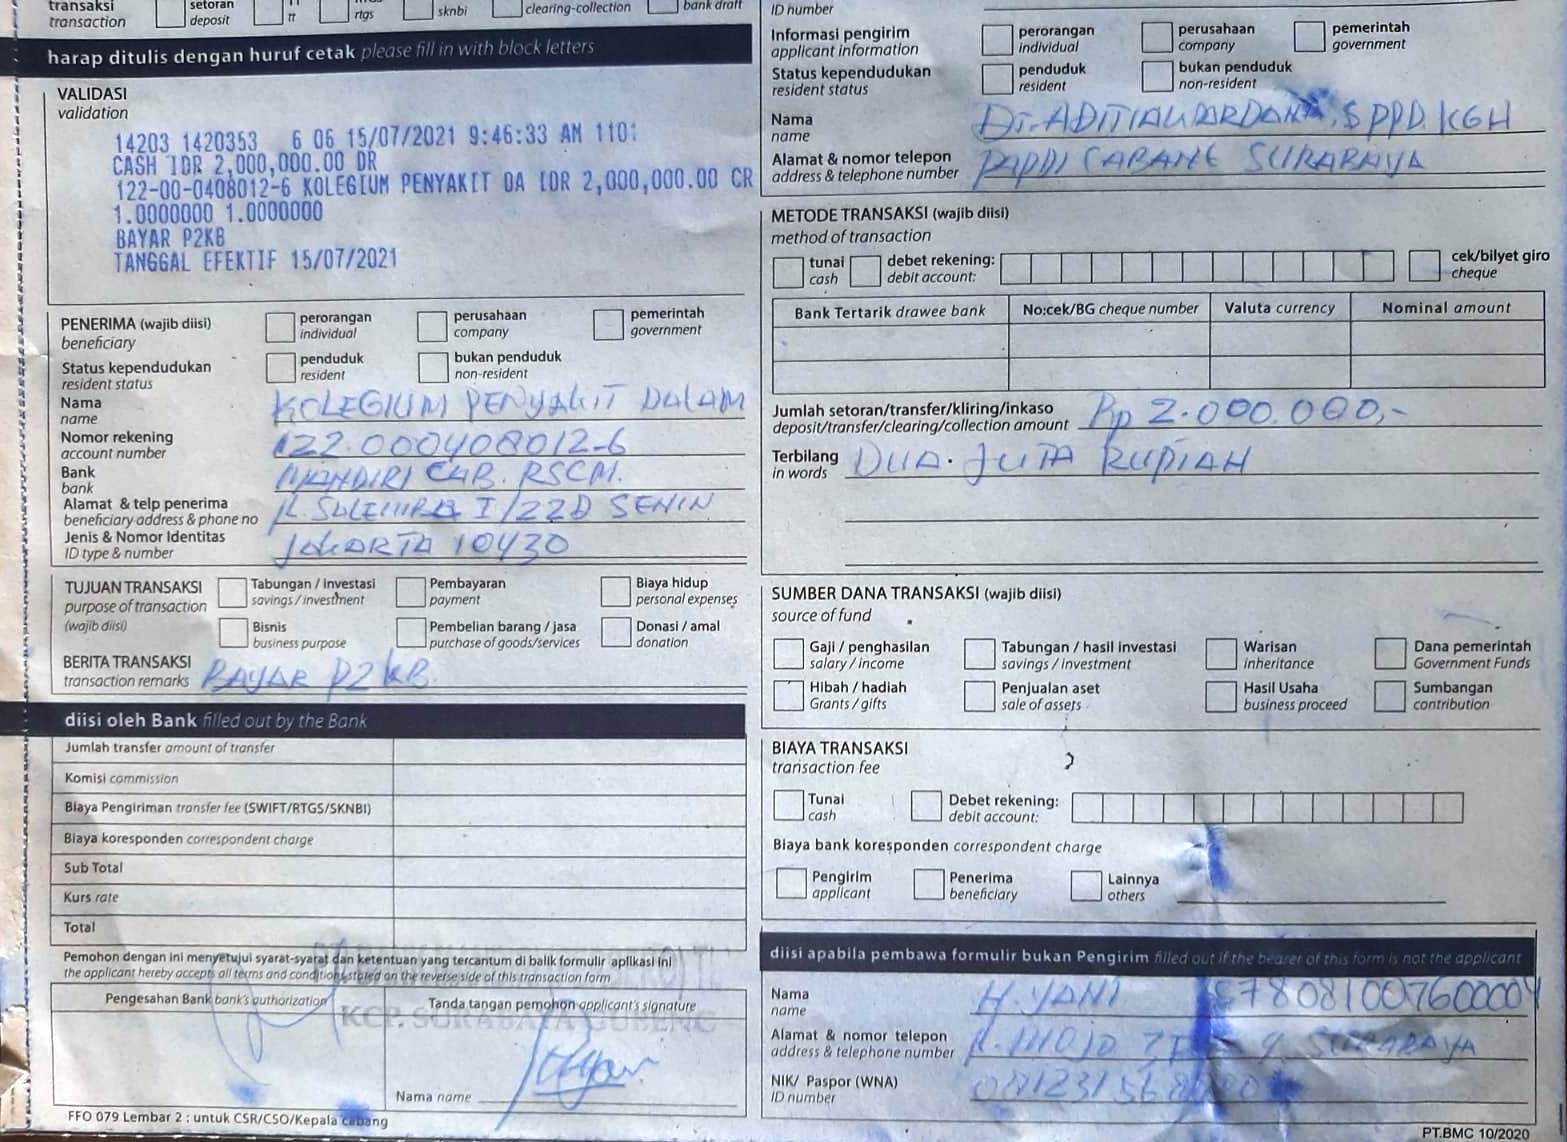 transaksi setoran
transaction deposit tt rtgs sknbi clearing-collection bank draft
harap ditulis dengan huruf cetak please fill in with block letters
VALIDASI
validation
14203 1420353 6 06 15/07/2021 9:46:33 AM 1101
CASH IDR 2,000,000.00 DR
122-00-0408012-6 KOLEGIUM PENYAKIT DA IDR 2,000,000.00 CR
1.0000000 1.0000000
BAYAR P2KB
TANGGAL EFEKTIF 15/07/2021
PENERIMA (wajib diisi) perorangan perusahaan pemerintah
beneficiary individual company government
Status kependudukan penduduk bukan penduduk
resident status resident non-resident
Nama KOLEGIUM PENYAKIT DALAM
name
Nomor rekening 122.000408012-6
account number
Bank MANDIRI CAB. RSCM.
bank
Alamat & telp penerima I/22D SENIN
beneficiary address & phone no
Jenis & Nomor Identitas JAKARTA 10430
ID type & number
TUJUAN TRANSAKSI Tabungan / investasi Pembayaran Biaya hidup
purpose of transaction savings / investment payment personal expenses
(wajib diisi) Bisnis Pembelian barang / jasa Donasi / amal
business purpose purchase of goods/services donation
BERITA TRANSAKSI BAYAR P2KB.
transaction remarks
diisi oleh Bank filled out by the Bank
Jumlah transfer amount of transfer
Komisi commission
Biaya Pengiriman transfer fee (SWIFT/RTGS/SKNBI)
Biaya koresponden correspondent charge
Sub Total
Kurs rate
Total
Pemohon dengan ini menyetujui syarat-syarat dan ketentuan yang tercantum di balik formulir aplikasi ini
the applicant hereby accepts all terms and conditions stated on the reverse side of this transaction form
Pengesahan Bank bank's authorization Tanda tangan pemohon applicant's signature
KCP. SURABAYA GUBENG
Nama name
FFO 079 Lembar 2 : untuk CSR/CSO/Kepala cabang
ID number
Informasi pengirim perorangan perusahaan pemerintah
applicant information individual company government
Status kependudukan penduduk bukan penduduk
resident status resident non-resident
Nama Dr. ADITIAWARDANA, SPPD.KGH
name
Alamat & nomor telepon PAPDI CABANG SURABAYA
address & telephone number
METODE TRANSAKSI (wajib diisi)
method of transaction
tunai debet rekening: cek/bilyet giro
cash debit account: cheque
Bank Tertarik drawee bank No:cek/BG cheque number Valuta currency Nominal amount
Jumlah setoran/transfer/kliring/inkaso Rp 2.000.000,-
deposit/transfer/clearing/collection amount
Terbilang DUA. JUTA RUPIAH
in words
SUMBER DANA TRANSAKSI (wajib diisi)
source of fund
Gaji / penghasilan Tabungan / hasil investasi Warisan Dana pemerintah
salary / income savings / investment inheritance Government Funds
Hibah / hadiah Penjualan aset Hasil Usaha Sumbangan
Grants / gifts sale of assets business proceed contribution
BIAYA TRANSAKSI
transaction fee
Tunai Debet rekening:
cash debit account:
Biaya bank koresponden correspondent charge
Pengirim Penerima Lainnya
applicant beneficiary others
diisi apabila pembawa formulir bukan Pengirim filled out if the bearer of this form is not the applicant
Nama H. YANI
name
Alamat & nomor telepon SURABAYA
address & telephone number
NIK/ Paspor (WNA)
ID number
PT.BMC 10/2020